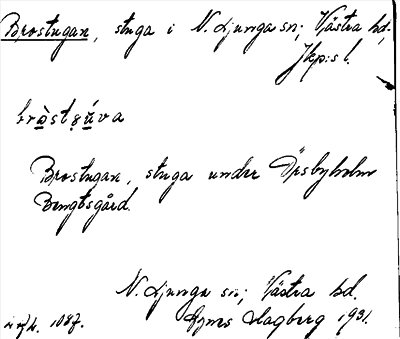 Brostugan, stuga i N. Ljunga sn; Västra hd,
Jkp:s l.
bròstsúva
Brostugan, stuga under Öpsbyholm
Bengtsgård.
N. Ljunga sn; Västra hd.
1087. Agnes Hagberg 1931.